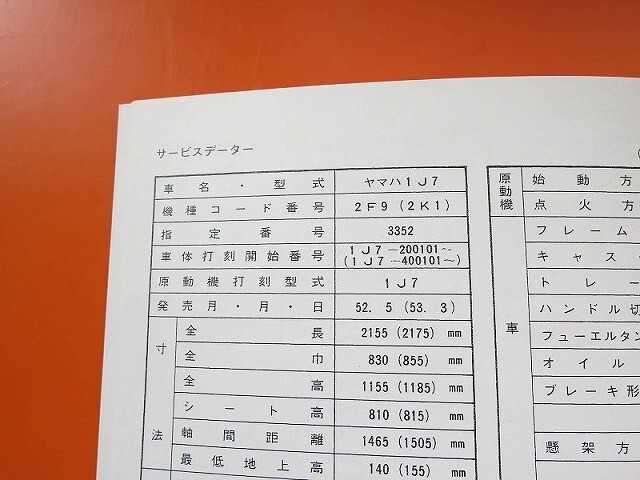 サービスデーター
車名・型式 ヤマハ1J7
機種コード番号 2F9 (2K1)
指定番号 3352
車体打刻開始番号 1J7-200101~
(1J7-400101~)
原動機打刻型式 1J7
発売月・月・日 52. 5 (53. 3)
寸法
全長 2155 (2175) mm
全巾 830 (855) mm
全高 1155 (1185) mm
シート高 810 (815) mm
軸間距離 1465 (1505) mm
最低地上高 140 (155) mm
原動機
始動方
点火方
車
フレーム
キャス
トレー
ハンドル切
フューエルタン
オイル
ブレーキ形
懸架方